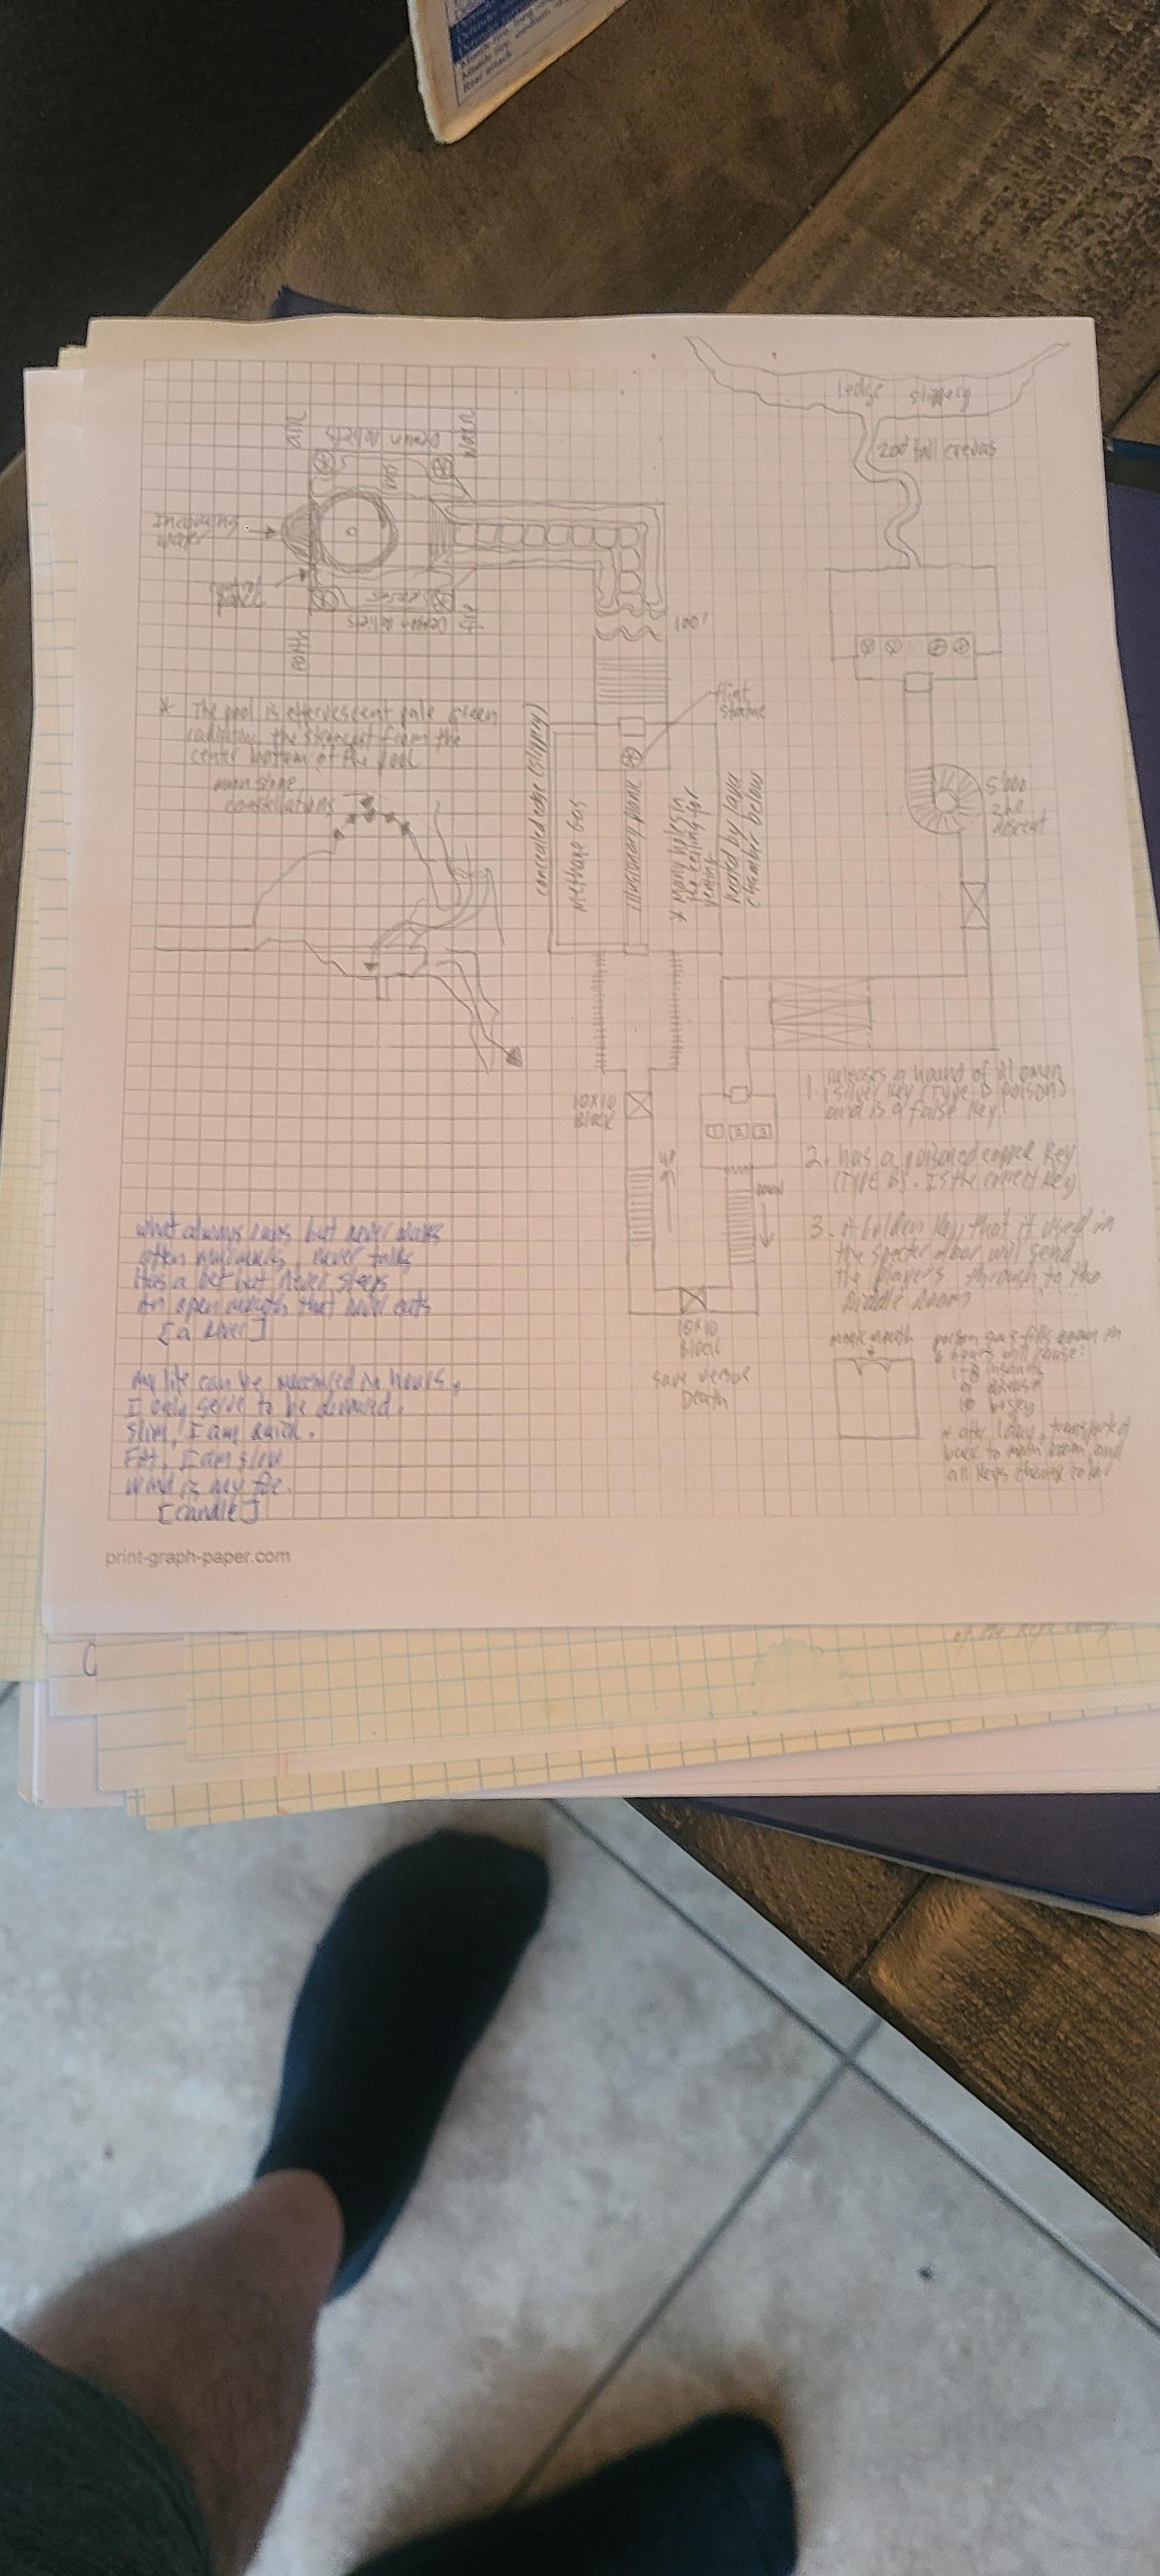 Missile fire, long
Missile fire, medium
Rear attack
ledge slippery
200' fall crevas
AIR
demon reliefs
WATER
Incoming
water
demon reliefs
earth
100'
flint
statue
* The pool is effervescent pale green
radiating the strongest from the
center bottom of the pool
moonstone
constellations
concealed edge (slippery)
methane gas
illusionary plank
* Many holes in
the ceiling for
venting
heated by lava
chamber below
5'000
2 hr
descent
10x10
Block
up
down
1 2 3
1. Releases a hound of ill omen
(silver key (type D poison)
and is a false key!
2. has a poisoned copper key
(TYPE B). Is the correct key
3. A Golden key that if used in
the specter door will send
the players through to the
Riddle Room
10x10
Block
save versus
Death
what always runs but never walks
often murmurs, never talks
Has a bed but never sleeps
An open mouth that never eats
[a River]
my life can be measured in hours,
I only serve to be devoured.
slim, I am quick.
Fat, I am slow
wind is my foe.
[candle]
mouth
poison gas fills room in
6 hours will cause:
1-8 insanity
9 disease
10
* after 1 day, transported
back to main room and
all keys change color
print-graph-paper.com
of the Keep